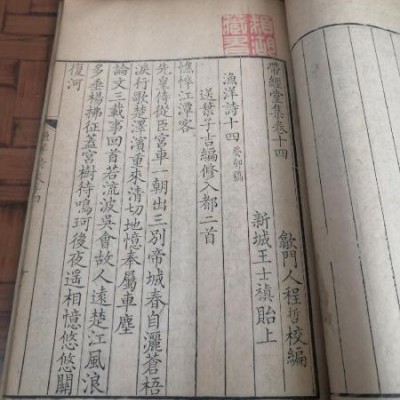 帶經堂集卷十四
歙門人程哲校編
漁洋詩十四 癸卯稿
新城王士禛貽上
送葉子吉編修入都二首
憔悴江潭客
先皇侍從臣宮車一朝出三別帝城春自灑蒼梧
淚行歌楚澤濱重來清切地憶奉屬車塵
論文三載事回首若流波吳會故人遠楚江風浪
多垂楊拂征蓋宮樹待鳴珂後夜遙相憶悠悠關
復河